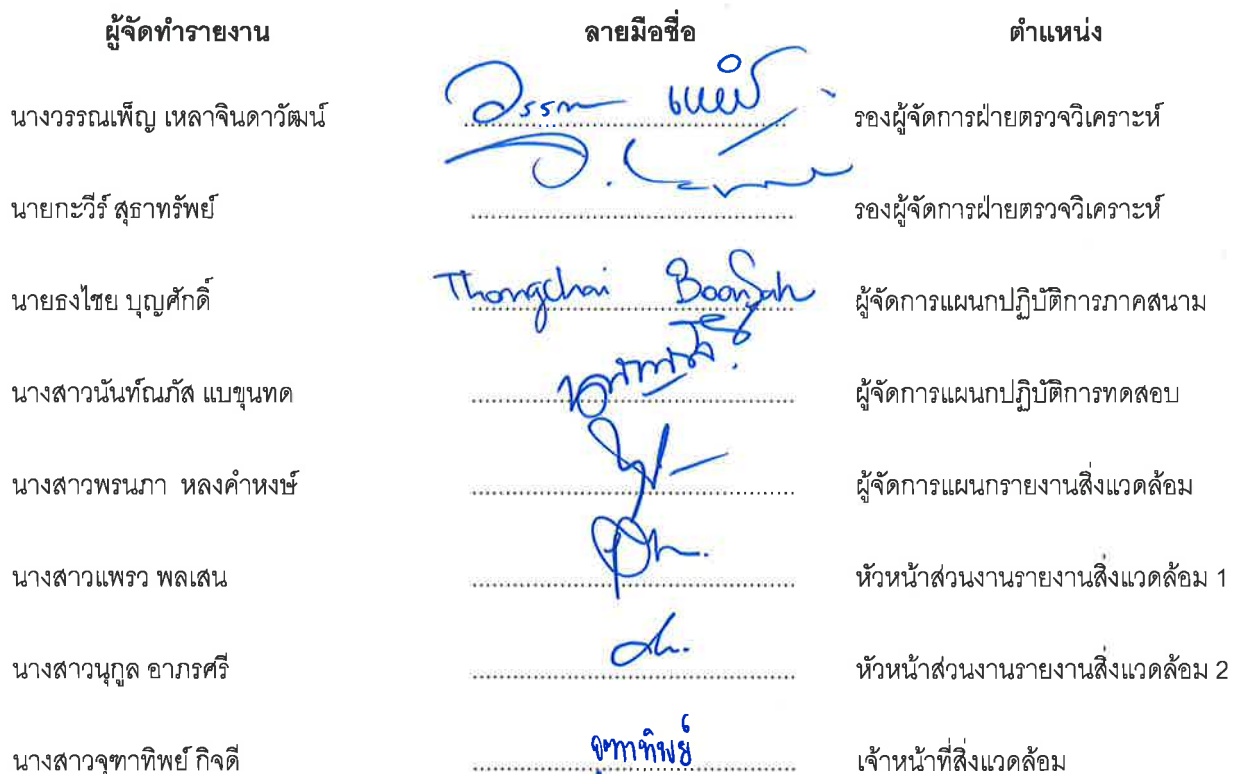 ผู้จัดทำรายงาน ลายมือชื่อ ตำแหน่ง
นางวรรณเพ็ญ เหลาจินดาวัฒน์ วรรณ เพ็ญ รองผู้จัดการฝ่ายตรวจวิเคราะห์
นายกะวีร์ สุธาทรัพย์ รองผู้จัดการฝ่ายตรวจวิเคราะห์
นายธงไชย บุญศักดิ์ Thongchai Boonsak ผู้จัดการแผนกปฏิบัติการภาคสนาม
นางสาวนันท์ณภัส แบขุนทด ผู้จัดการแผนกปฏิบัติการทดสอบ
นางสาวพรนภา หลงคำหงษ์ ผู้จัดการแผนกรายงานสิ่งแวดล้อม
นางสาวแพรว พลเสน หัวหน้าส่วนงานรายงานสิ่งแวดล้อม 1
นางสาวนุกูล อาภรศรี หัวหน้าส่วนงานรายงานสิ่งแวดล้อม 2
นางสาวจุฑาทิพย์ กิจดี จุฑาทิพย์ เจ้าหน้าที่สิ่งแวดล้อม